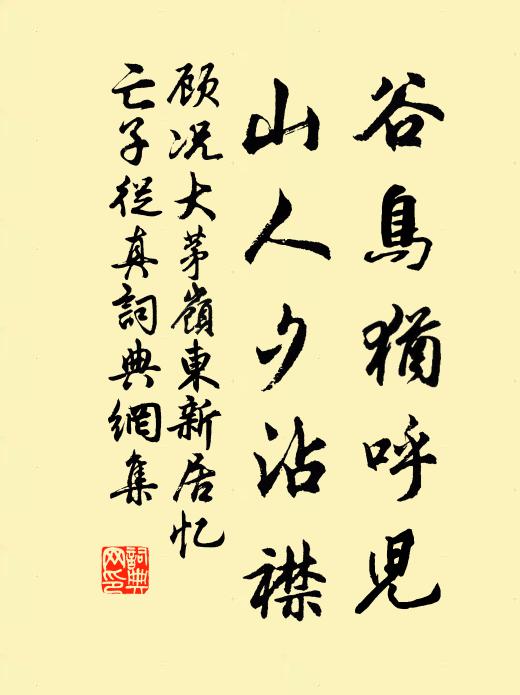 谷鳥猶呼児
山人夕沾襟
顾况大茅嶺東新居忆
亡子從真詞典網集
詞典网印